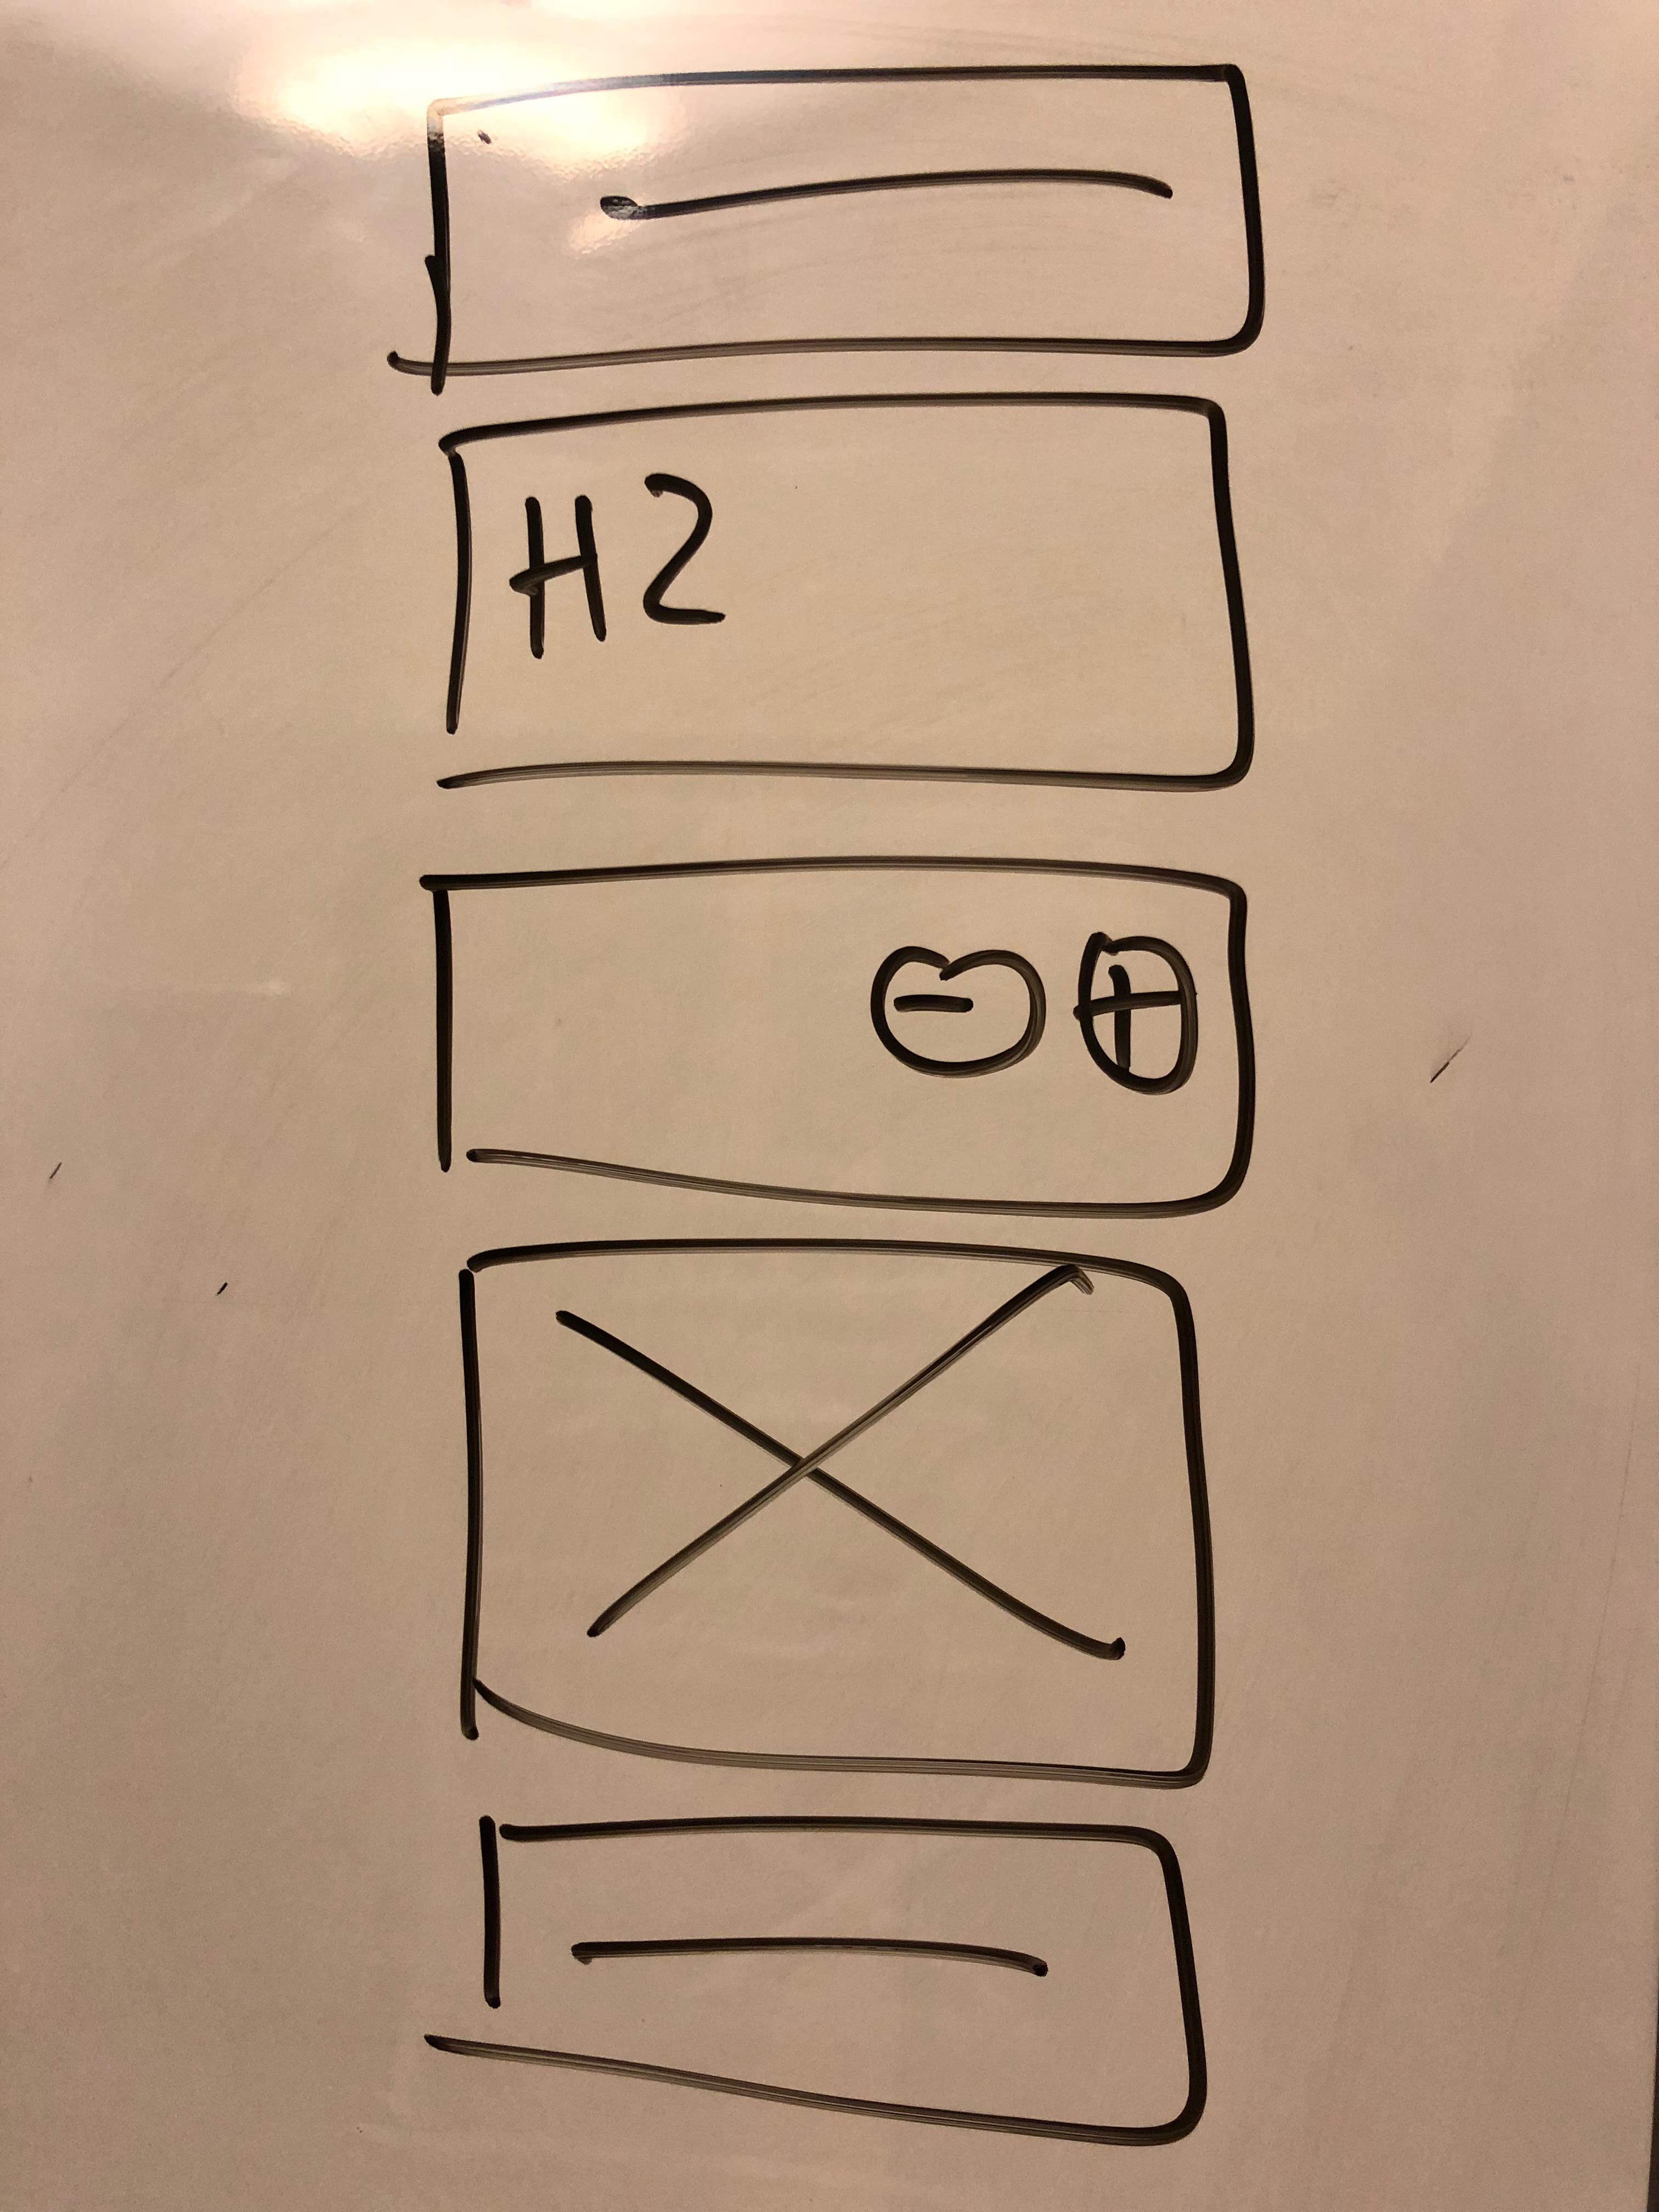 H2
- +